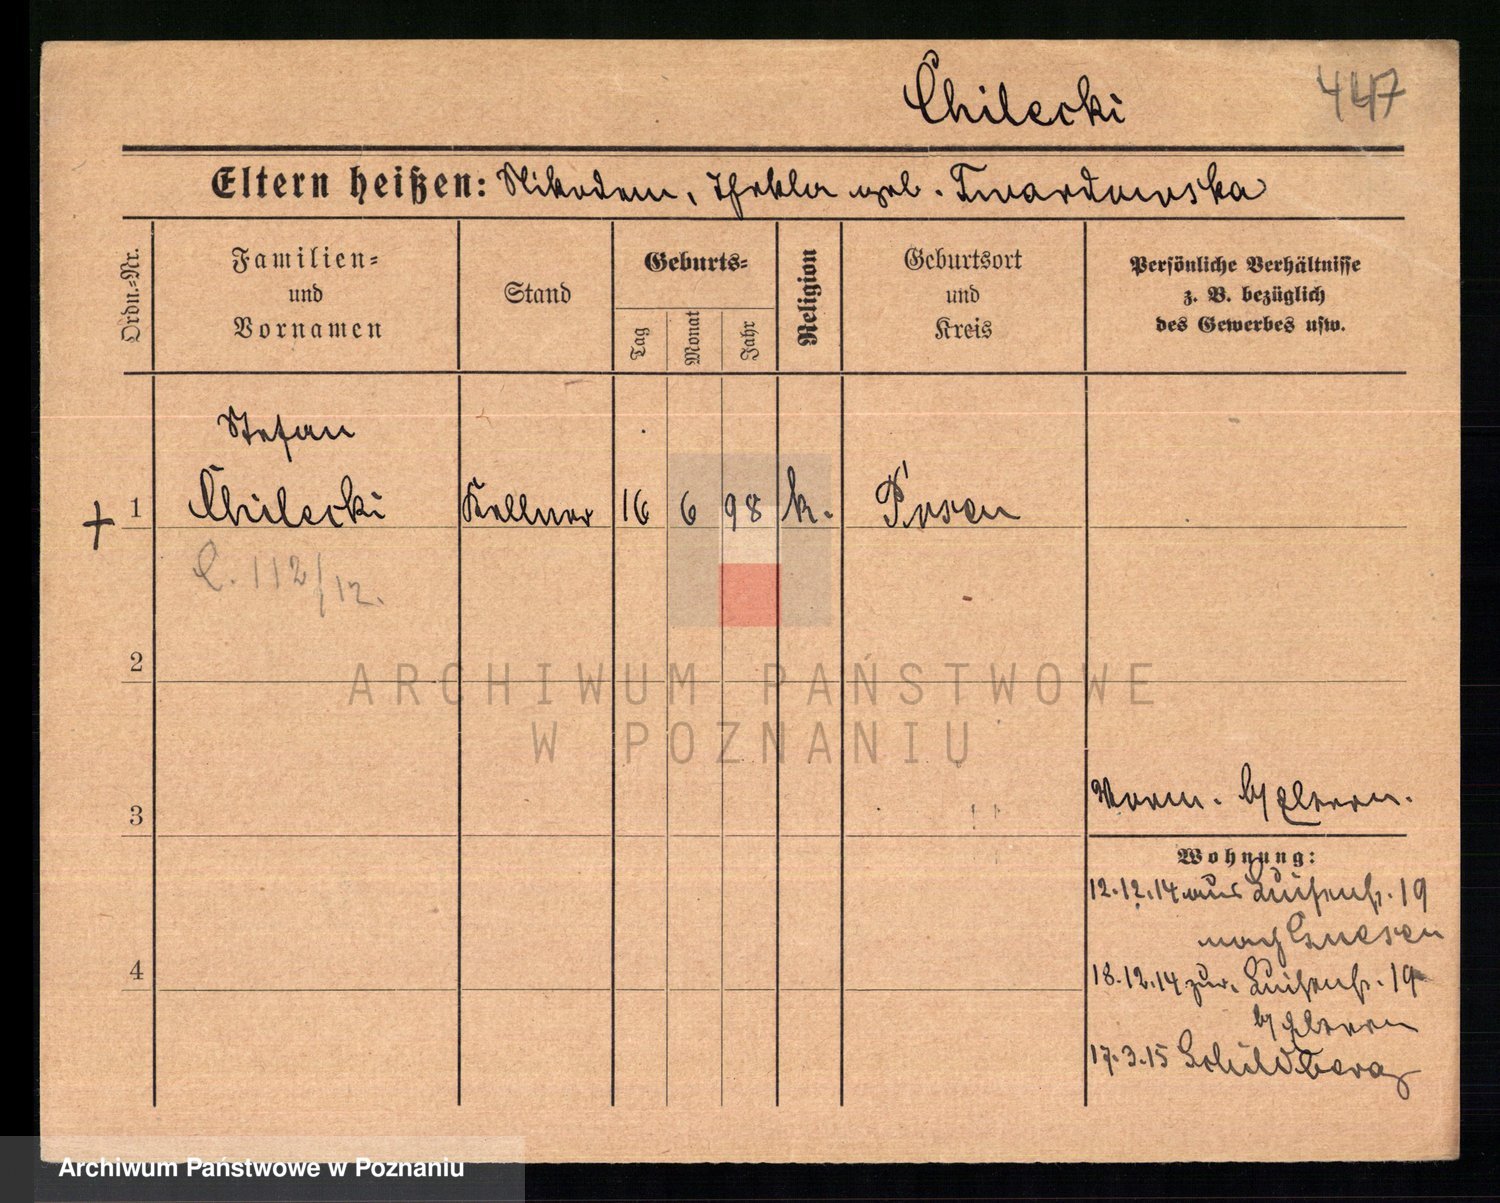 Chilecki 447
Eltern heißen: Nikodem, Thekla geb. Twardowska
Ordn.-Nr.
Familien-
und
Vornamen
Stand
Geburts-
Tag
Monat
Jahr
Religion
Geburtsort
und
Kreis
Persönliche Verhältnisse
z. B. bezüglich
des Gewerbes usw.
Stefan
+ 1 Chilecki Kellner 16 6 98 k. Posen
C. 112/12.
2
ARCHIWUM PAŃSTWOWE
W POZNANIU
3
Vorm. b/ Eltern.
Wohnung:
12.12.14 aus Luisenstr. 19
nach Gnesen
4
18.12.14 zur. Luisenstr. 19
b/ Eltern
17.3.15 Schildberg
Archiwum Państwowe w Poznaniu